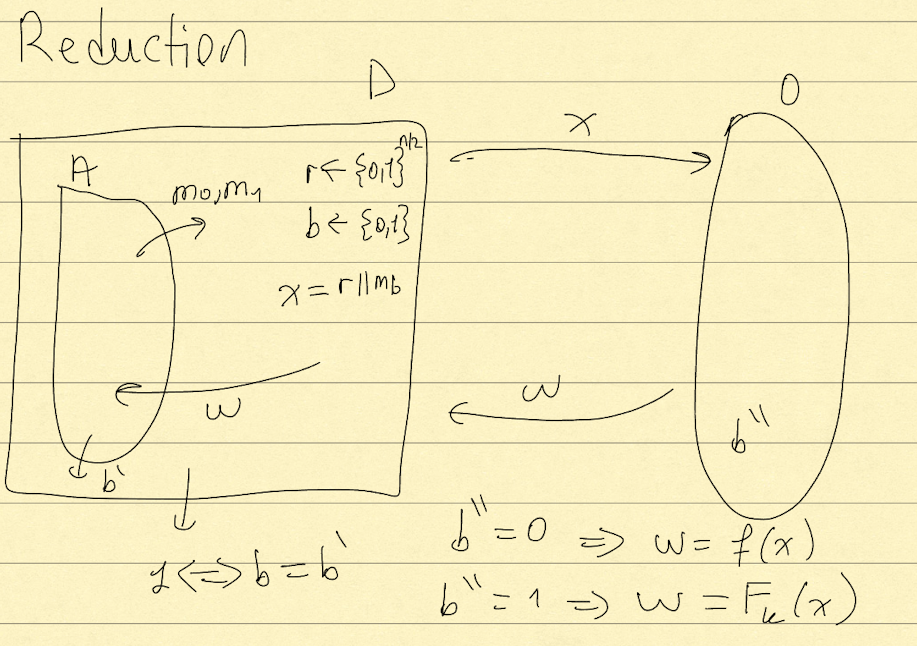 Reduction
D
O
A
m0,m1
r ← {0,1}^n/2
b ← {0,1}
x = r||mb
x
w
w
b'
b''
1 ⟺ b = b'
b'' = 0 ⟹ w = f(x)
b'' = 1 ⟹ w = Fk(x)